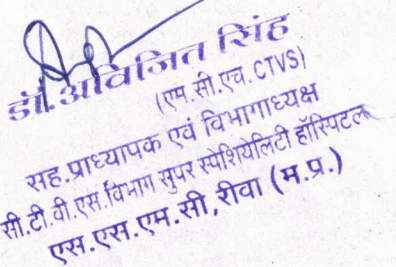 डॉ. अविजित सिंह
(एम.सी.एच. CTVS)
सह.प्राध्यापक एवं विभागाध्यक्ष
सी.टी.वी.एस.विभाग सुपर स्पेशियेलिटी हॉस्पिटल
एस.एस.एम.सी, रीवा (म.प्र.)